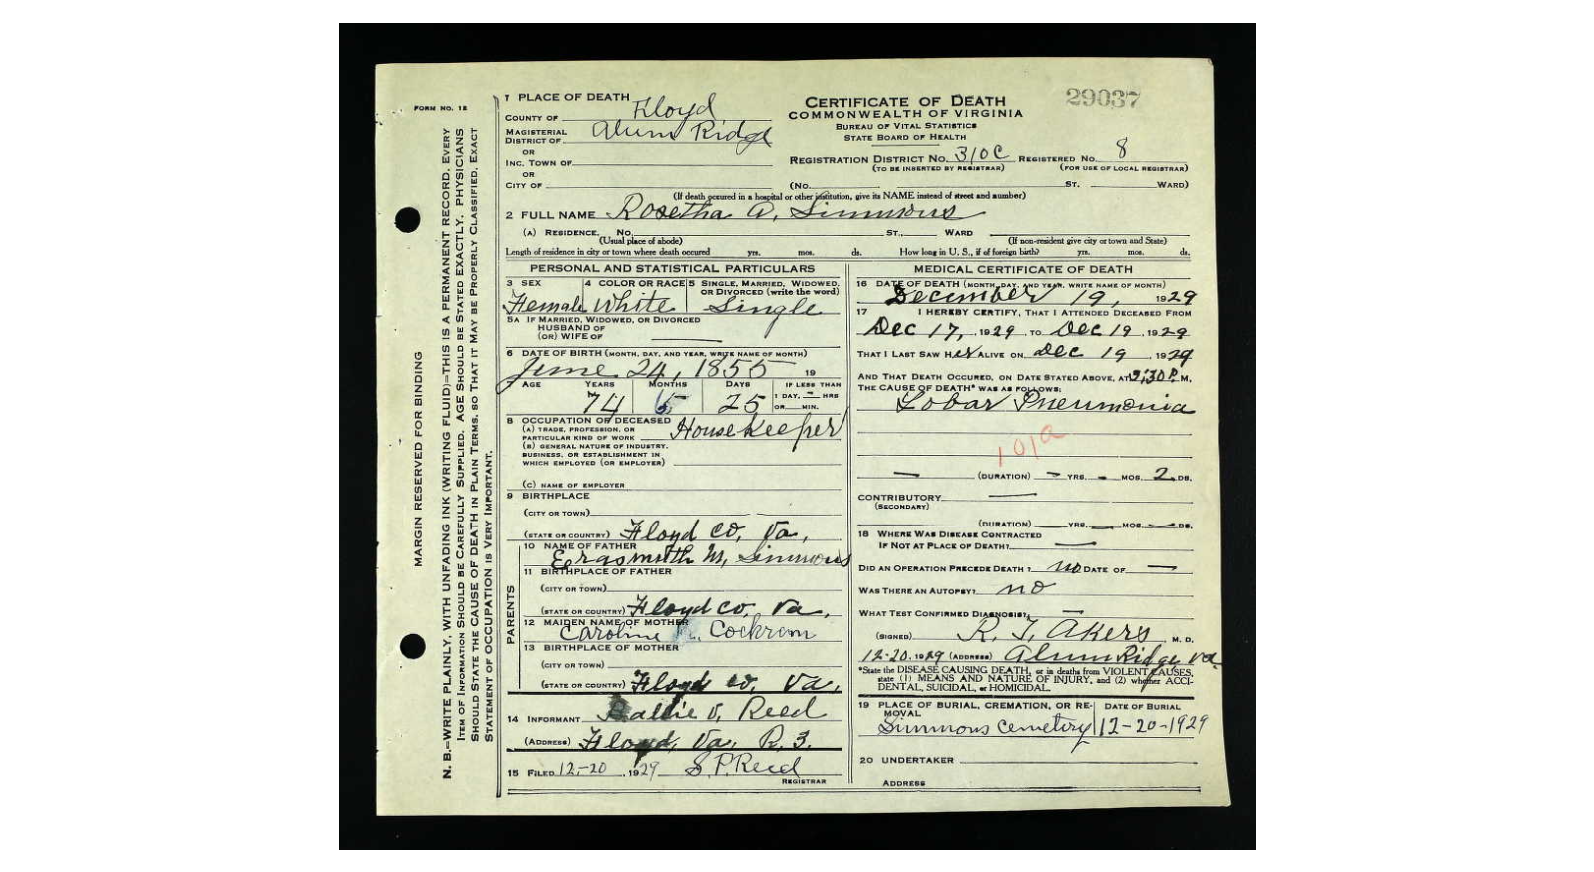 FORM NO. 12
MARGIN RESERVED FOR BINDING
N. B.—WRITE PLAINLY, WITH UNFADING INK (WRITING FLUID)—THIS IS A PERMANENT RECORD. EVERY
ITEM OF INFORMATION SHOULD BE CAREFULLY SUPPLIED. AGE SHOULD BE STATED EXACTLY. PHYSICIANS
SHOULD STATE THE CAUSE OF DEATH IN PLAIN TERMS, SO THAT IT MAY BE PROPERLY CLASSIFIED. EXACT
STATEMENT OF OCCUPATION IS VERY IMPORTANT.
1 PLACE OF DEATH
COUNTY OF Floyd
MAGISTERIAL DISTRICT OF Alum Ridge
OR
INC. TOWN OF
OR
CITY OF
CERTIFICATE OF DEATH
COMMONWEALTH OF VIRGINIA
BUREAU OF VITAL STATISTICS
STATE BOARD OF HEALTH
29037
REGISTRATION DISTRICT No. 310C REGISTERED No. 8
(TO BE INSERTED BY REGISTRAR) (FOR USE OF LOCAL REGISTRAR)
(No. ST. WARD)
(If death occured in a hospital or other institution, give its NAME instead of street and number)
2 FULL NAME Rosetha A. Simmons
(A) RESIDENCE. No. ST., WARD
(Usual place of abode) (If non-resident give city or town and State)
Length of residence in city or town where death occured yrs. mos. ds. How long in U. S., if of foreign birth? yrs. mos. ds.
PERSONAL AND STATISTICAL PARTICULARS
3 SEX 4 COLOR OR RACE 5 SINGLE, MARRIED, WIDOWED, OR DIVORCED (write the word)
Female White Single
5A IF MARRIED, WIDOWED, OR DIVORCED
HUSBAND OF
(OR) WIFE OF
6 DATE OF BIRTH (MONTH, DAY, AND YEAR, WRITE NAME OF MONTH)
June 24, 1855 19
AGE YEARS MONTHS DAYS IF LESS THAN
1 DAY, - HRS
OR MIN.
74 5 25
8 OCCUPATION OF DECEASED
(A) TRADE, PROFESSION, OR
PARTICULAR KIND OF WORK Housekeeper
(B) GENERAL NATURE OF INDUSTRY,
BUSINESS, OR ESTABLISHMENT IN
WHICH EMPLOYED (OR EMPLOYER)
(C) NAME OF EMPLOYER
9 BIRTHPLACE
(CITY OR TOWN)
(STATE OR COUNTRY) Floyd co, Va,
PARENTS
10 NAME OF FATHER
Erasmuth M, Simmons
11 BIRTHPLACE OF FATHER
(CITY OR TOWN)
(STATE OR COUNTRY) Floyd co, Va,
12 MAIDEN NAME OF MOTHER
Caroline Cockram
13 BIRTHPLACE OF MOTHER
(CITY OR TOWN)
(STATE OR COUNTRY) Floyd co, Va,
14 INFORMANT V, Reed
(ADDRESS) Floyd, Va, R. 3.
15 FILED 12-20, 1929 S. P. Reed
REGISTRAR
MEDICAL CERTIFICATE OF DEATH
16 DATE OF DEATH (MONTH, DAY, AND YEAR, WRITE NAME OF MONTH)
December 19, 1929
17 I HEREBY CERTIFY, THAT I ATTENDED DECEASED FROM
Dec 17, 1929 TO Dec 19 1929
THAT I LAST SAW Her ALIVE ON Dec 19 1929
AND THAT DEATH OCCURED, ON DATE STATED ABOVE, AT 2:30 P. M.
THE CAUSE OF DEATH* WAS AS FOLLOWS:
Lobar Pneumonia
101a
(DURATION) - YRS. - MOS. 2 DS.
CONTRIBUTORY
(SECONDARY)
(DURATION) YRS. MOS. DS.
18 WHERE WAS DISEASE CONTRACTED
IF NOT AT PLACE OF DEATH?
DID AN OPERATION PRECEDE DEATH? no DATE OF
WAS THERE AN AUTOPSY? no
WHAT TEST CONFIRMED DIAGNOSIS?
(SIGNED) R. T. Akers, M. D.
12-20, 1929 (ADDRESS) Alum Ridge, Va
*State the DISEASE CAUSING DEATH, or in deaths from VIOLENT CAUSES,
state (1) MEANS AND NATURE OF INJURY, and (2) whether ACCI-
DENTAL, SUICIDAL, or HOMICIDAL.
19 PLACE OF BURIAL, CREMATION, OR RE-MOVAL DATE OF BURIAL
Simmons Cemetery 12-20-1929
20 UNDERTAKER
ADDRESS